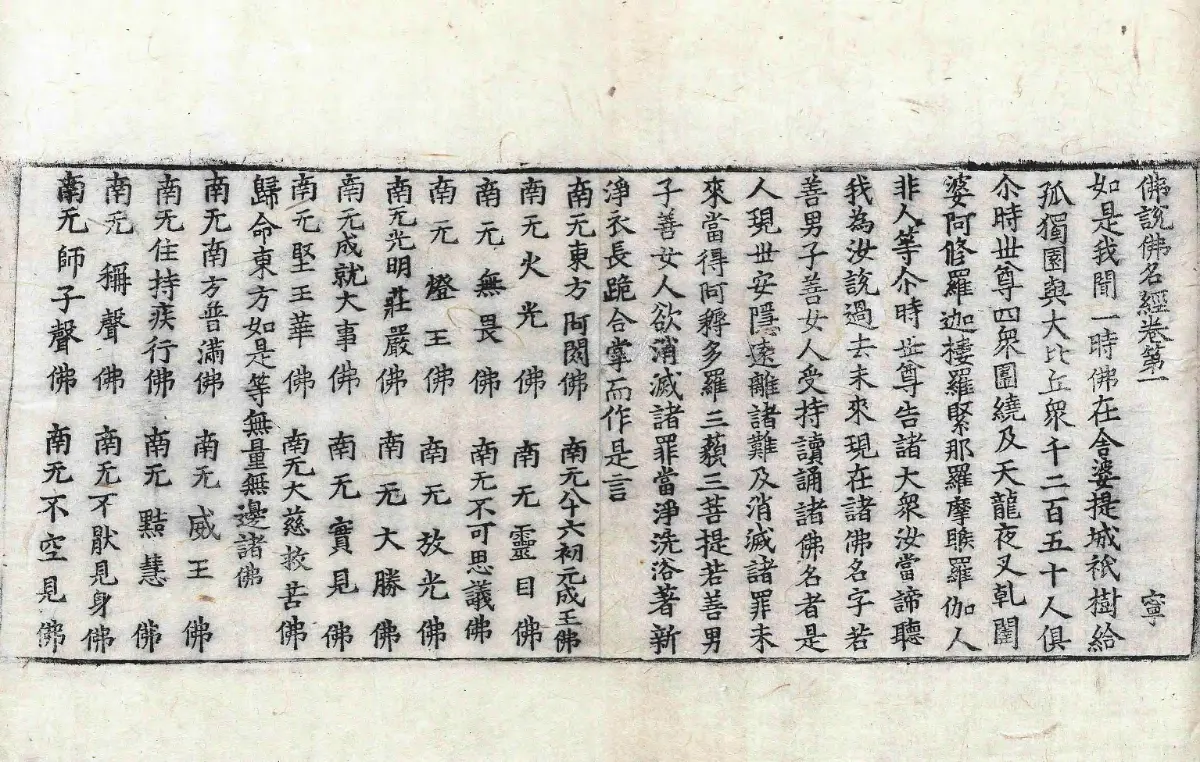 佛說佛名經卷第一 寧
如是我聞一時佛在舍婆提城祇樹給
孤獨園與大比丘眾千二百五十人俱
尒時世尊四眾圍繞及天龍夜叉乹闥
婆阿修羅迦樓羅緊那羅摩睺羅伽人
非人等尒時世尊告諸大眾汝當諦聽
我為汝說過去未來現在諸佛名字若
善男子善女人受持讀誦諸佛名者是
人現世安隱遠離諸難及消滅諸罪未
來當得阿耨多羅三藐三菩提若善男
子善女人欲消滅諸罪當淨洗浴著新
淨衣長跪合掌而作是言
南无東方阿閦佛 南无
南无火光佛 南无靈目佛
南无無畏佛 南无不可思議佛
南无燈王佛 南无放光佛
南无光明莊嚴佛 南无大勝佛
南无成就大事佛 南无實見佛
南无堅王華佛 南无大慈救苦佛
歸命東方如是等無量無邊諸佛
南无南方普滿佛 南无威王佛
南无住持疾行佛 南无黠慧佛
南无稱聲佛 南无不猒見身佛
南无師子聲佛 南无不空見佛